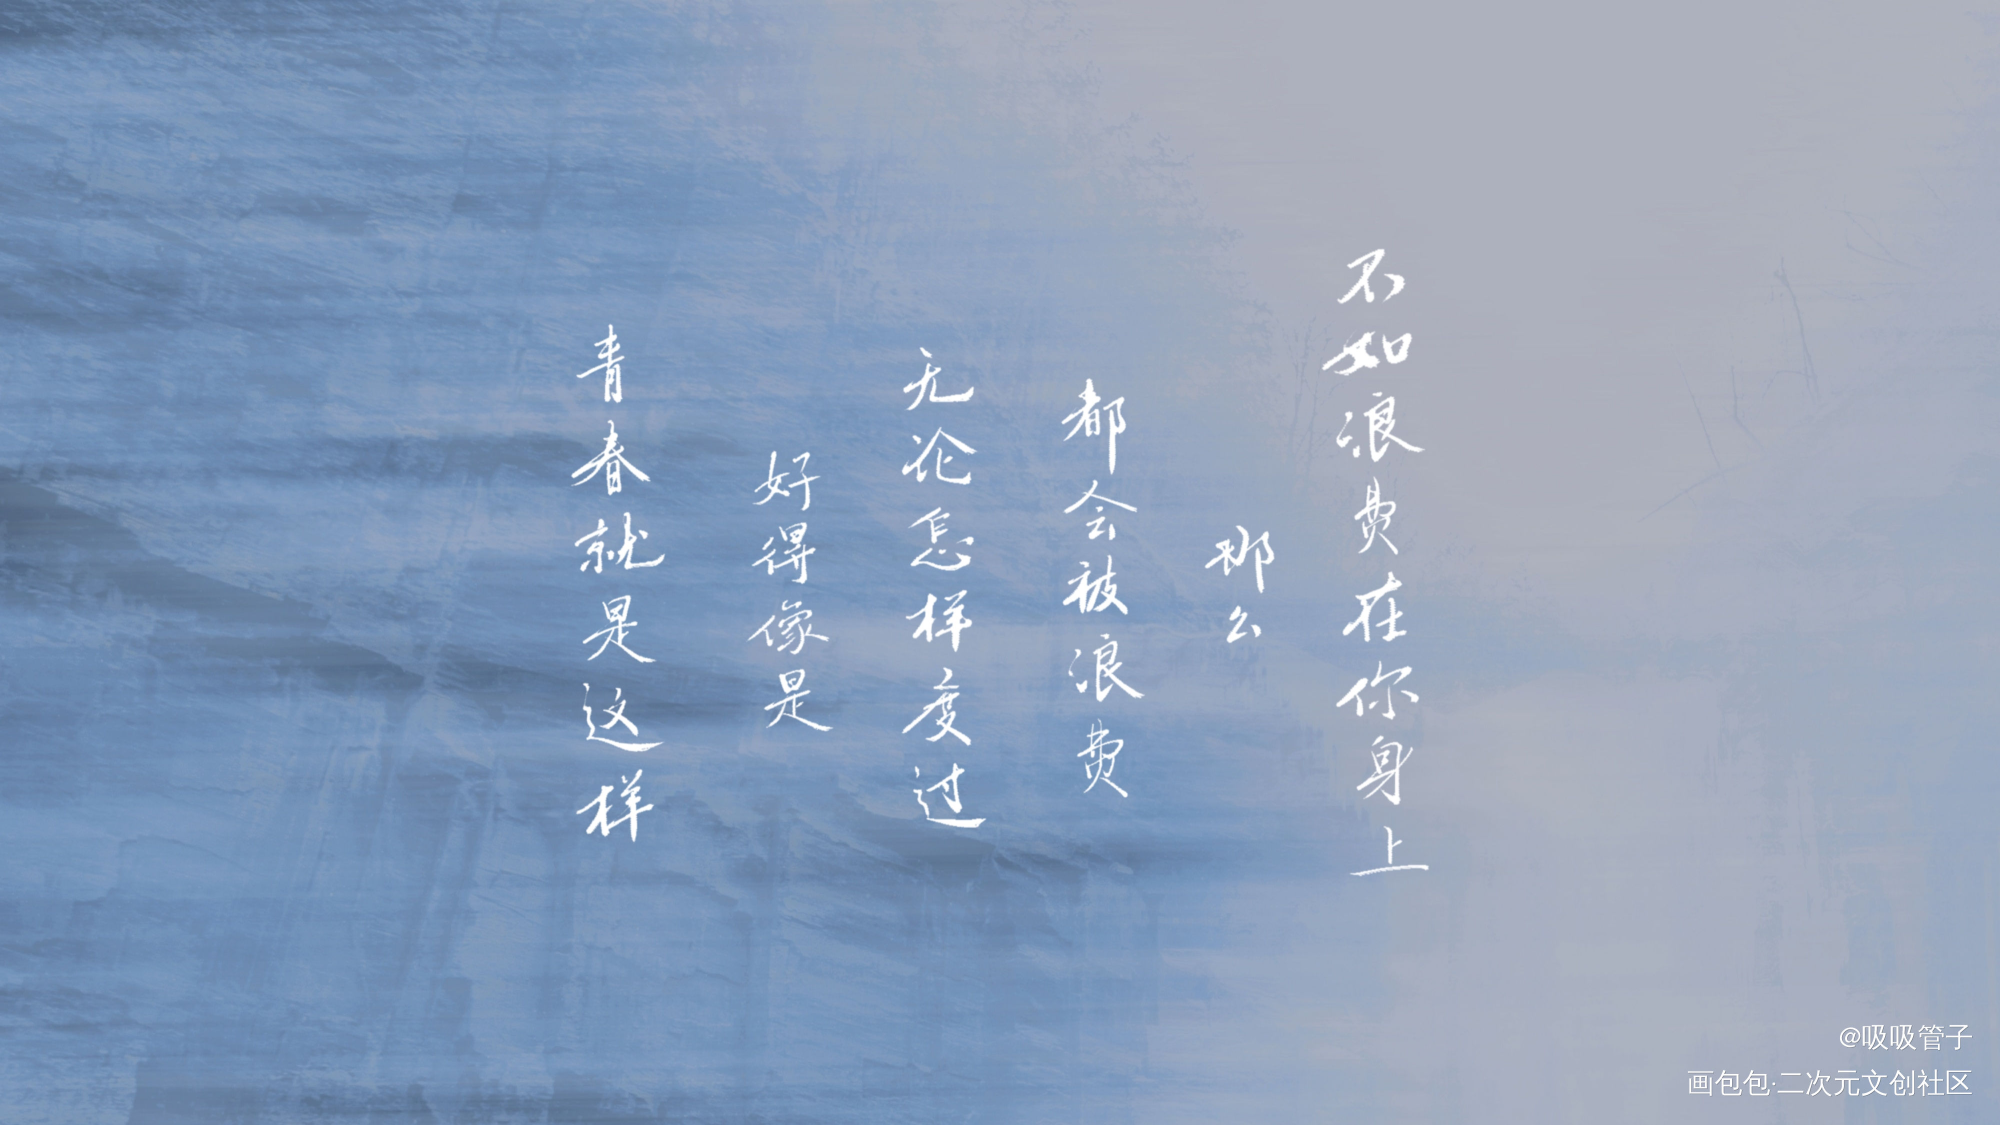 青春就是这样
好得像是
无论怎样度过
都会被浪费
那么
不如浪费在你身上
@吸吸管子
画包包·二次元文创社区